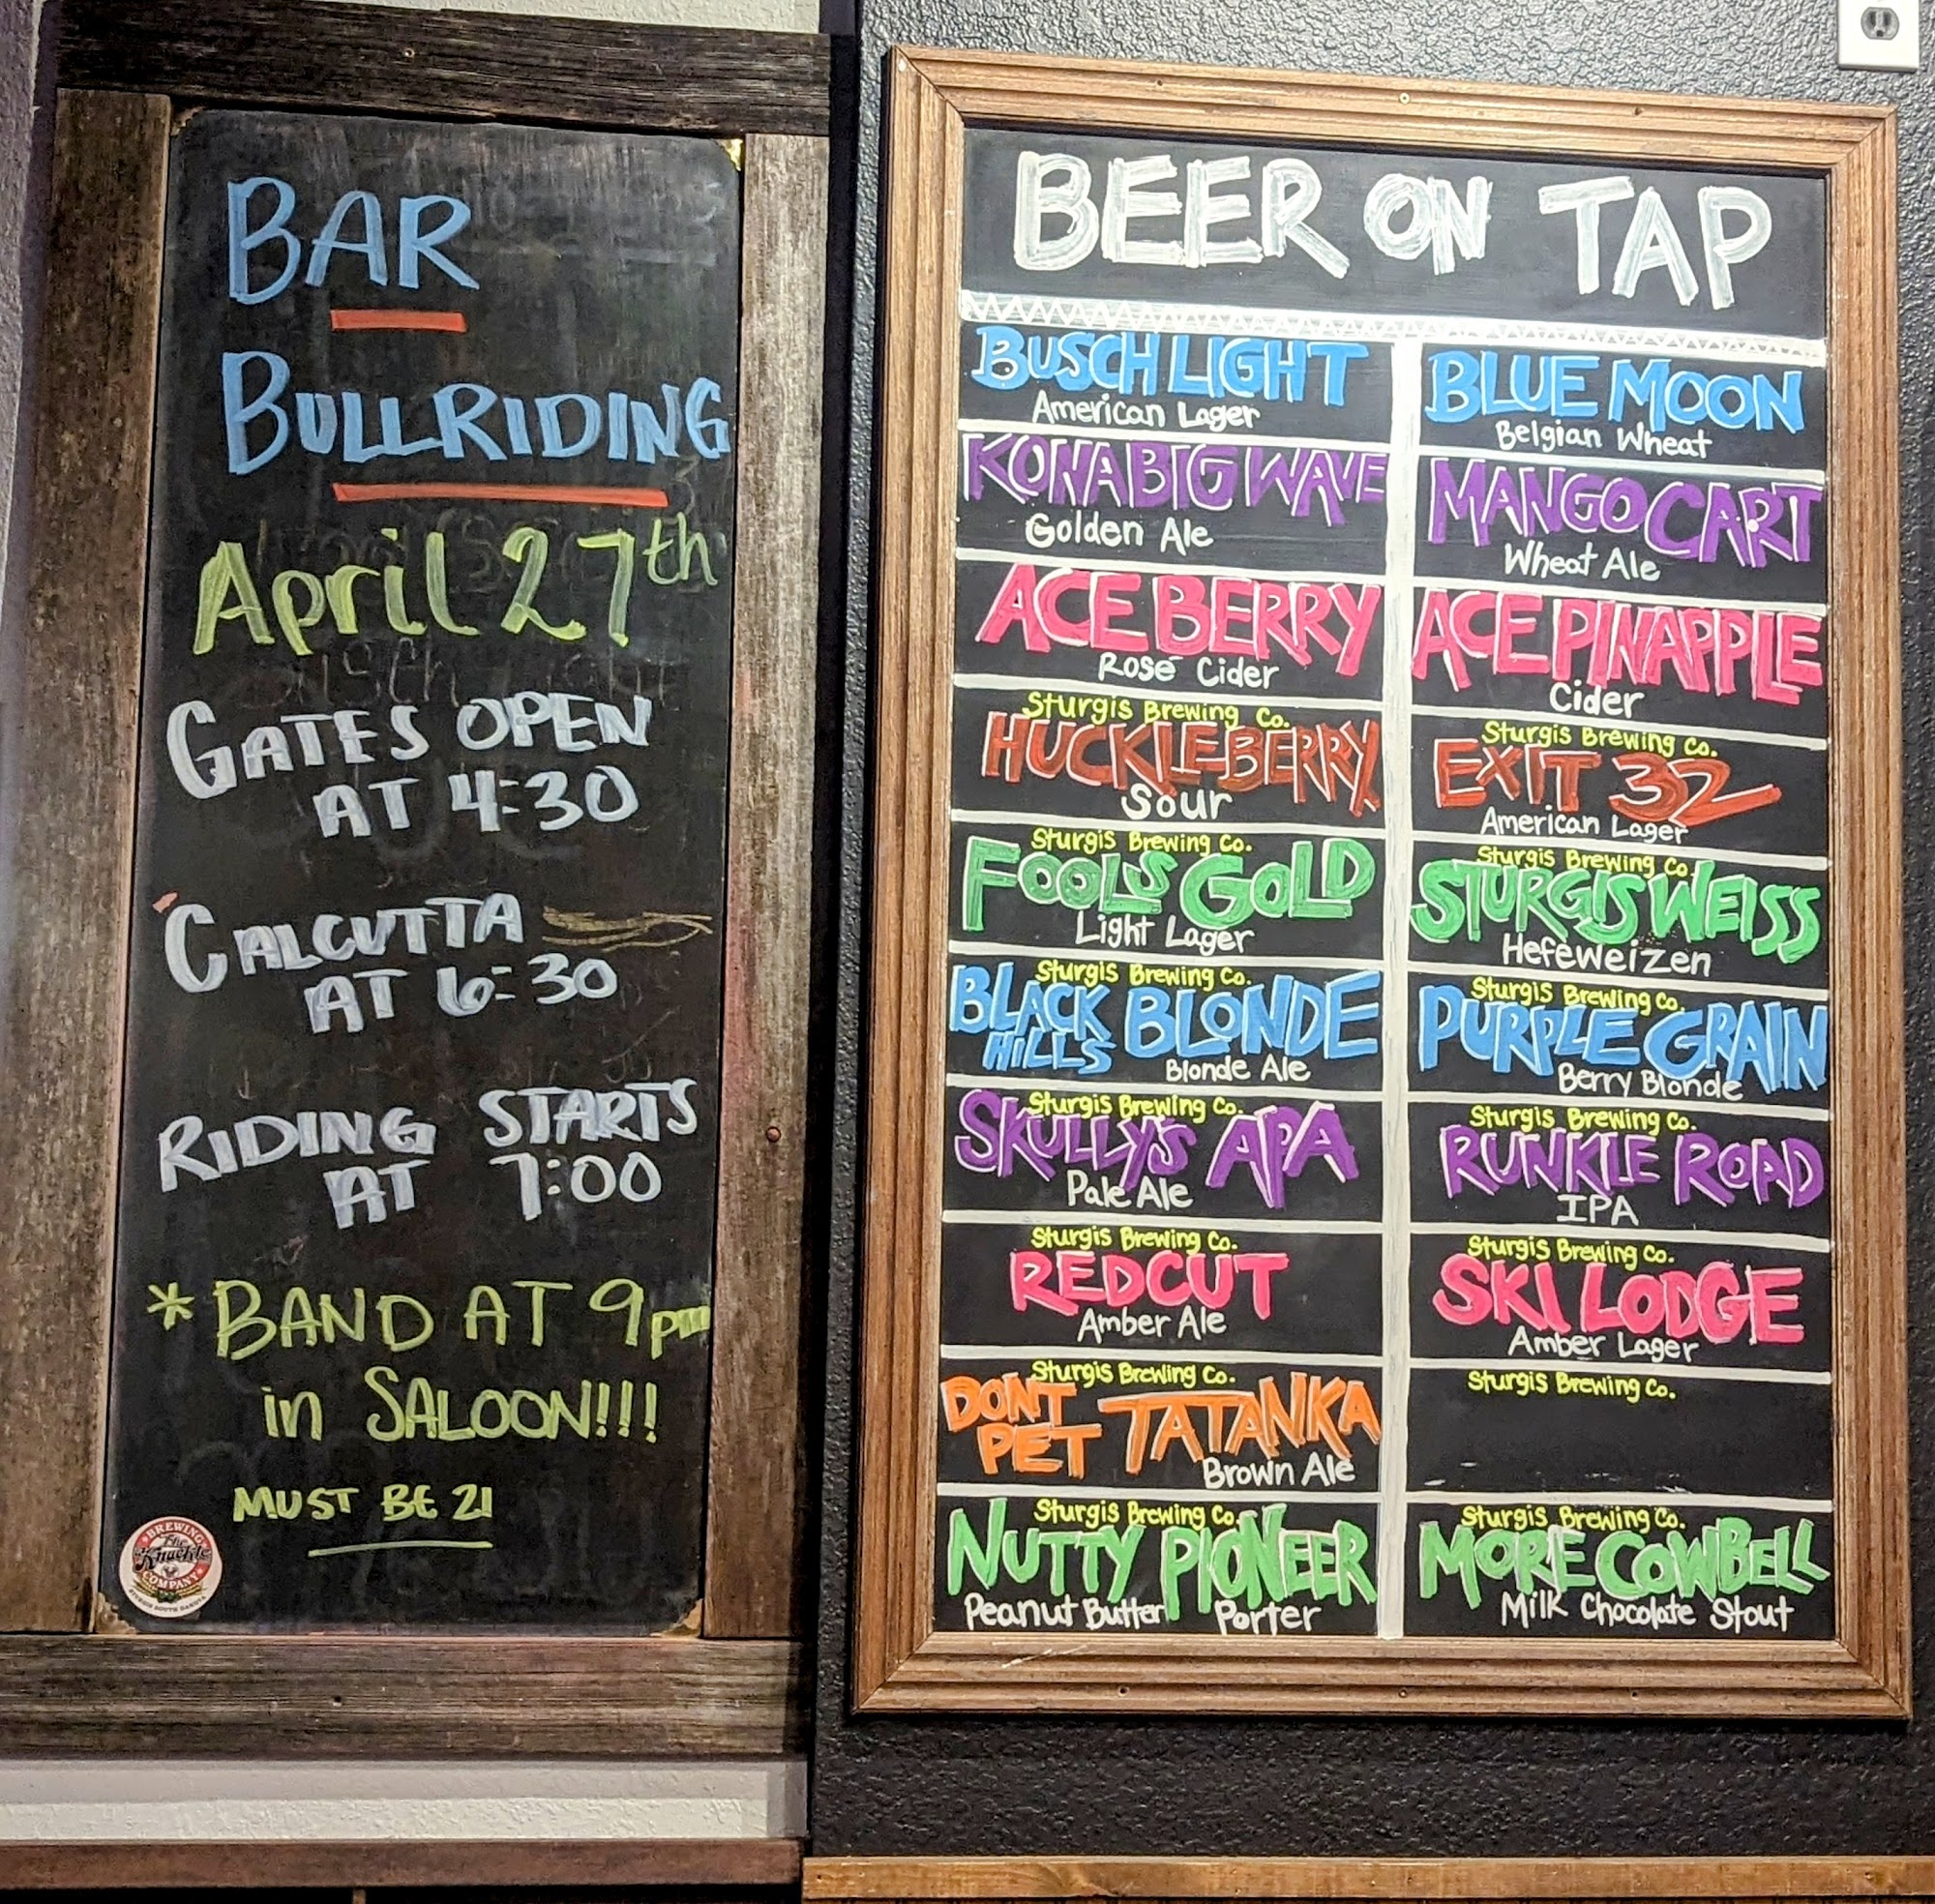 BAR
BULLRIDING
April 27th
GATES OPEN
AT 4:30
CALCUTTA
AT 6:30
RIDING STARTS
AT 7:00
* BAND AT 9pm
in SALOON!!!
MUST BE 21
BREWING
The
Knuckle
COMPANY
STURGIS SOUTH DAKOTA
BEER ON TAP
BUSCH LIGHT
American Lager
BLUE MOON
Belgian Wheat
KONA BIG WAVE
Golden Ale
MANGO CART
Wheat Ale
ACE BERRY
Rosé Cider
ACE PINAPPLE
Cider
Sturgis Brewing Co.
HUCKLEBERRY
Sour
Sturgis Brewing Co.
EXIT 32
American Lager
Sturgis Brewing Co.
FOOLS GOLD
Light Lager
Sturgis Brewing Co.
STURGIS WEISS
Hefeweizen
Sturgis Brewing Co.
BLACK HILLS BLONDE
Blonde Ale
Sturgis Brewing Co.
PURPLE GRAIN
Berry Blonde
Sturgis Brewing Co.
SKULLY'S APA
Pale Ale
Sturgis Brewing Co.
RUNKLE ROAD
IPA
Sturgis Brewing Co.
REDCUT
Amber Ale
Sturgis Brewing Co.
SKI LODGE
Amber Lager
Sturgis Brewing Co.
DONT PET TATANKA
Brown Ale
Sturgis Brewing Co.
Sturgis Brewing Co.
NUTTY PIONEER
Peanut Butter Porter
Sturgis Brewing Co.
MORE COWBELL
Milk Chocolate Stout